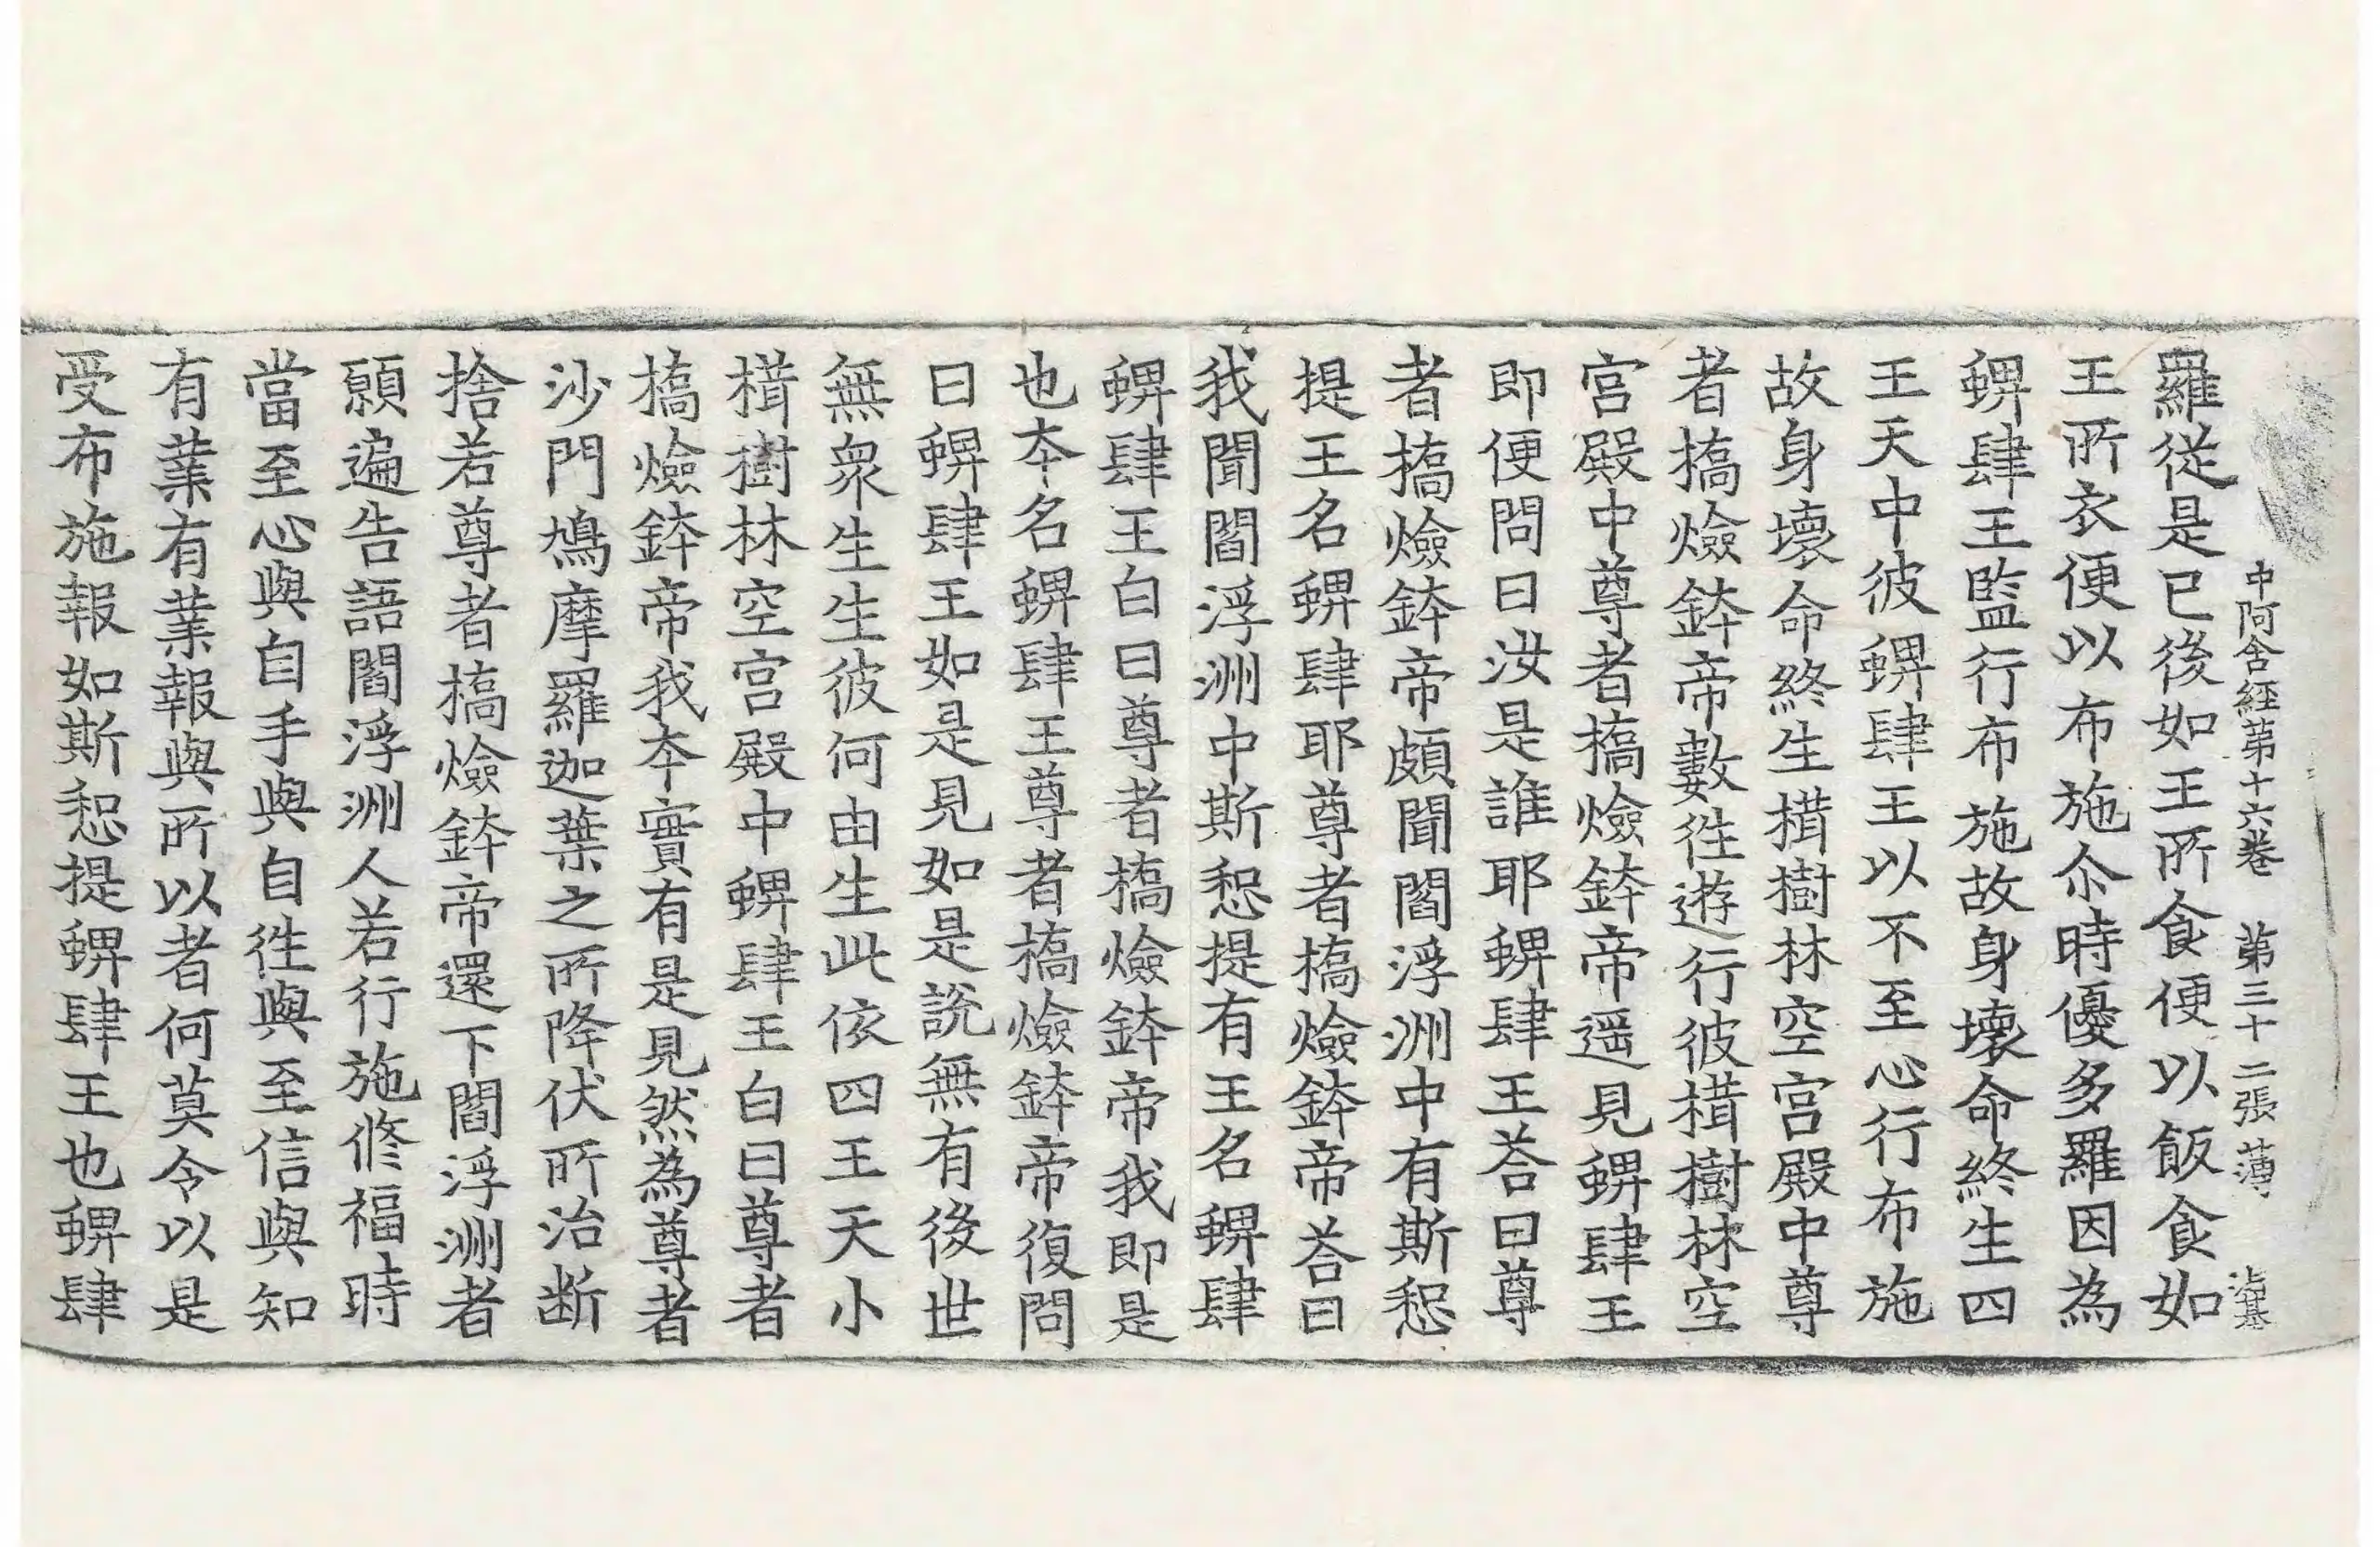 中阿含經第十六卷 第三十二張 薄
羅從是已後如王所食便以飯食如
王所衣便以布施尒時優多羅因為
蜱肆王監行布施故身壞命終生四
王天中彼蜱肆王以不至心行布施
故身壞命終生榵樹林空宮殿中尊
者橋燄鉢帝數往遊行彼榵樹林空
宮殿中尊者橋燄鉢帝遥見蜱肆王
即便問曰汝是誰耶蜱肆王荅曰尊
者橋燄鉢帝頗聞閻浮洲中有斯惒
提王名蜱肆耶尊者橋燄鉢帝荅曰
我聞閻浮洲中斯惒提有王名蜱肆
蜱肆王白曰尊者橋燄鉢帝我即是
也夲名蜱肆王尊者橋燄鉢帝復問
曰蜱肆王如是見如是說無有後世
無衆生生彼何由生此依四王天小
榵樹林空宮殿中蜱肆王白曰尊者
橋燄鉢帝我夲實有是見然為尊者
沙門鳩摩羅迦葉之所降伏所治断
捨若尊者橋燄鉢帝還下閻浮洲者
願遍告語閻浮洲人若行施修福時
當至心與自手與自往與至信與知
有業有業報與所以者何莫令以是
受布施報如斯惒提蜱肆王也蜱肆